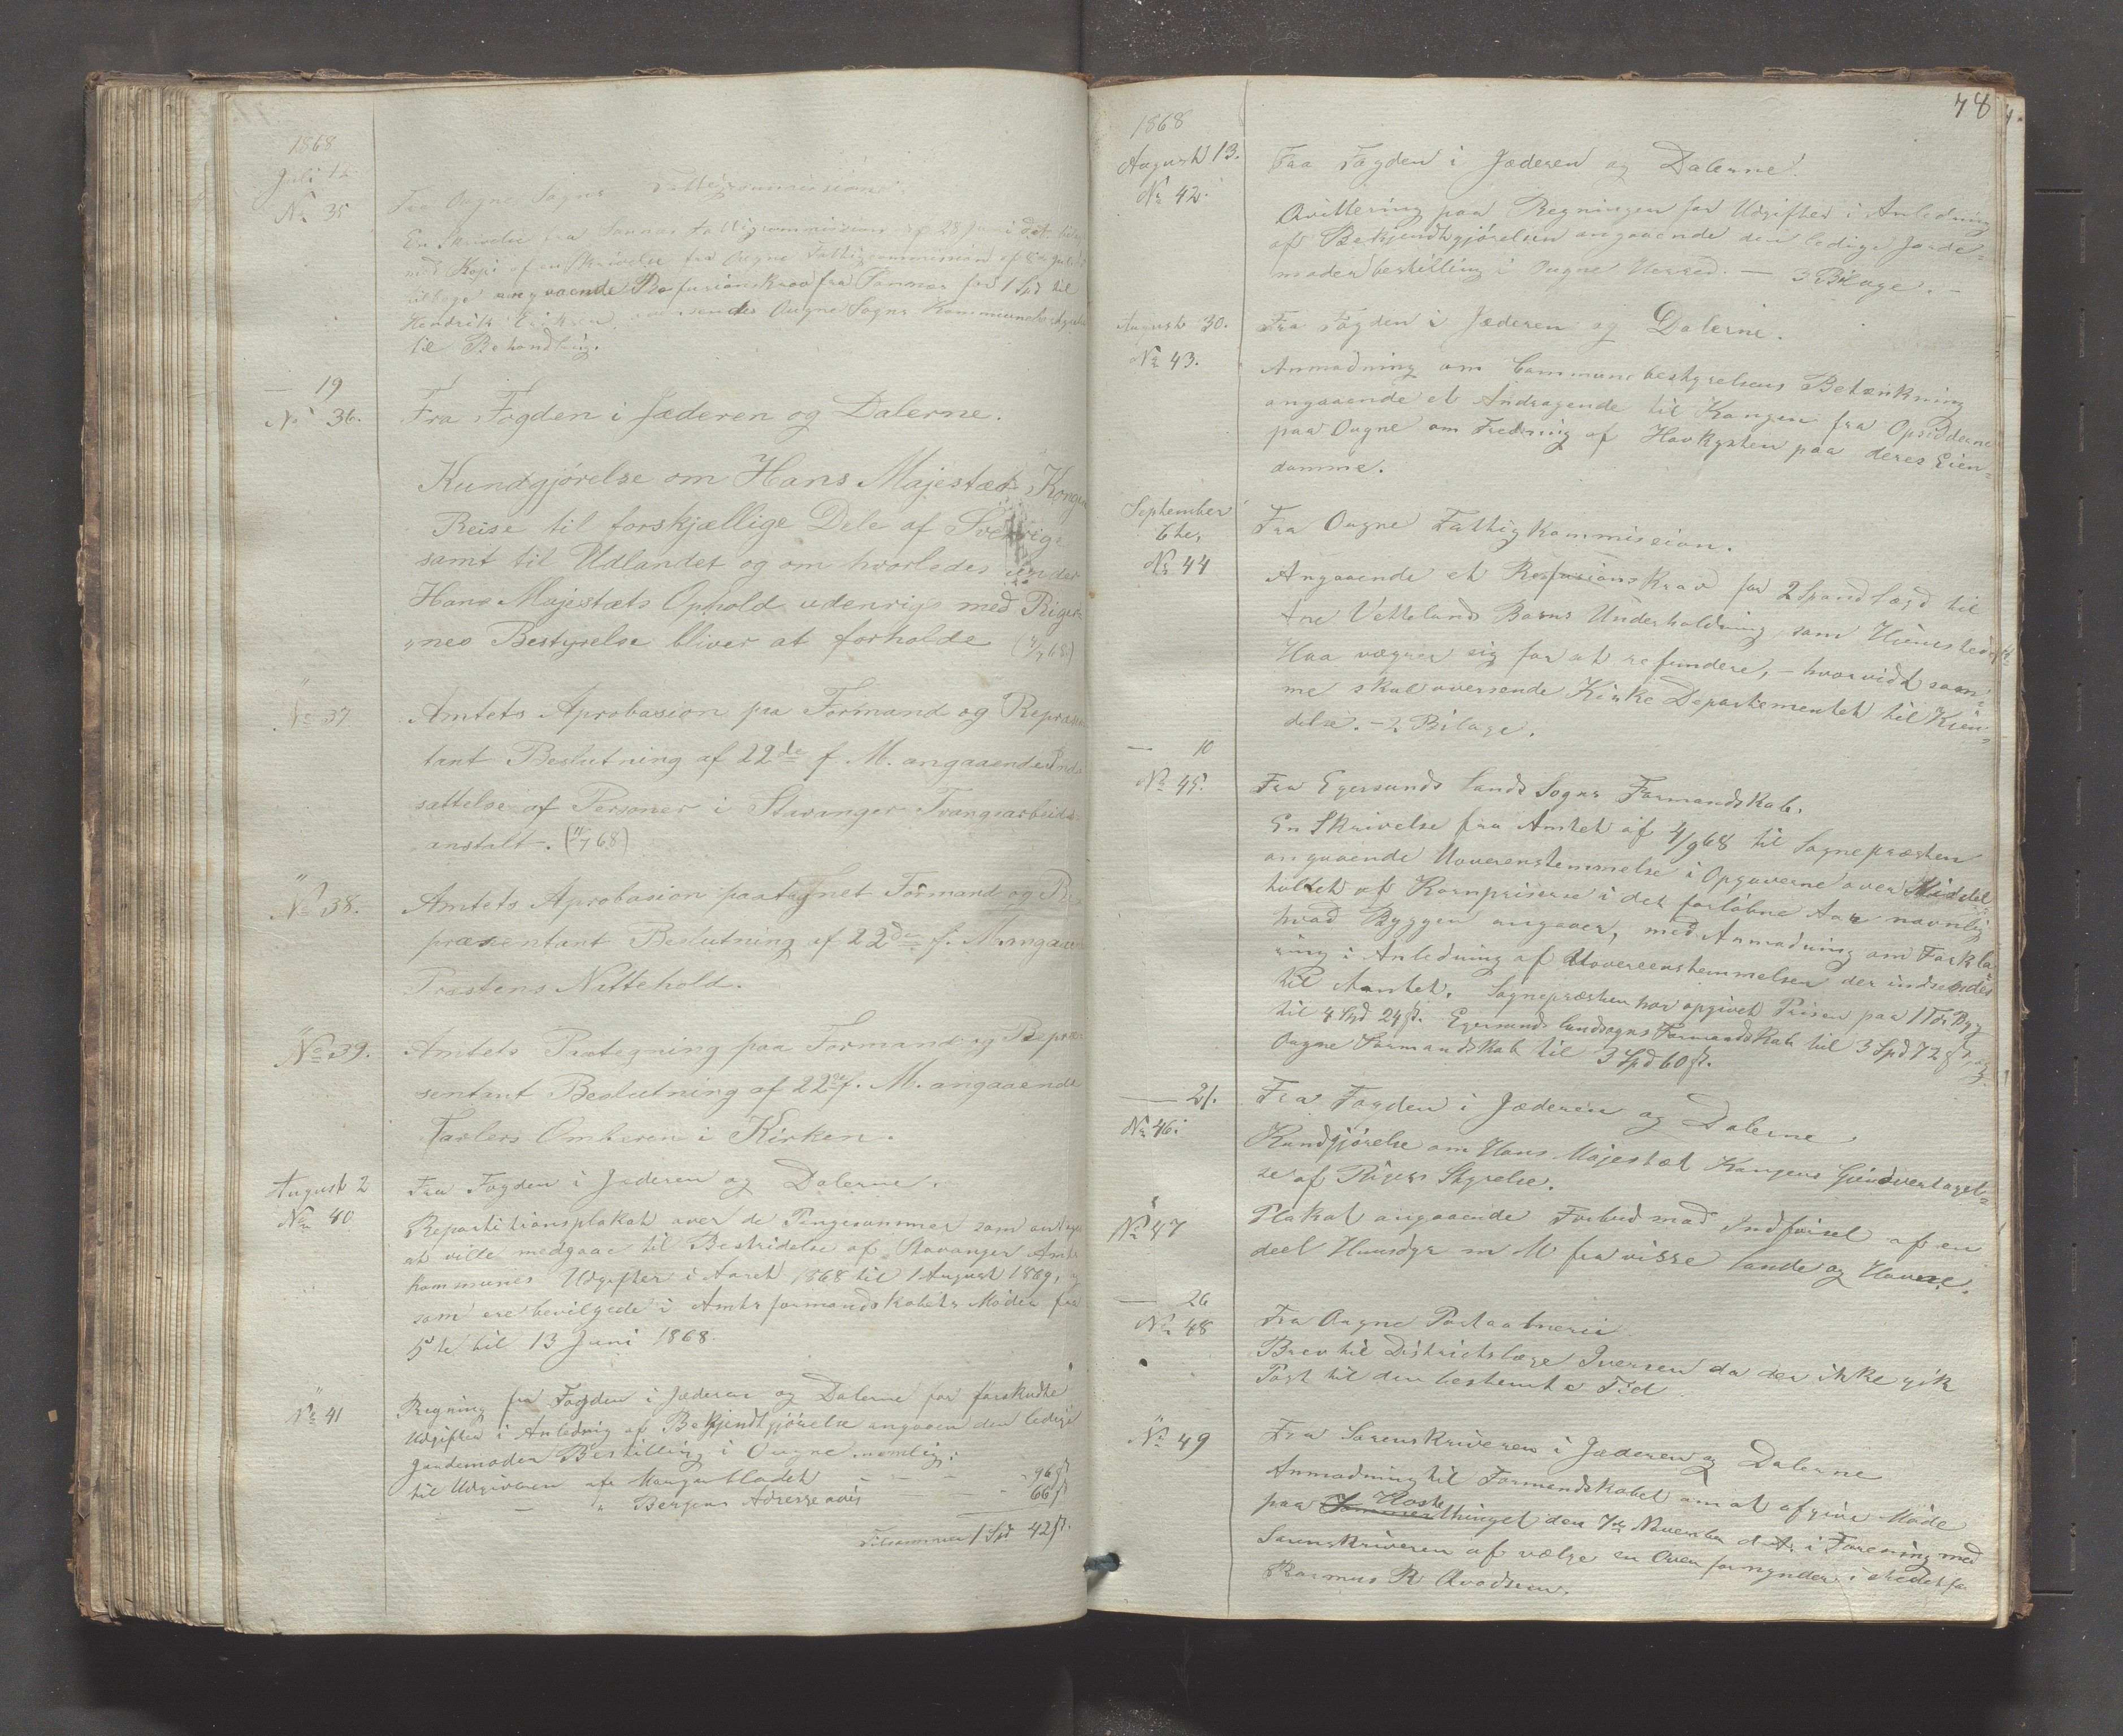 1868
Juli 12
No 35
Fra Ougne Sogns Fattigcommission.
En Skrivelse fra Sannæs Fattigcommission af 28 Juni
med Kopi af en Skrivelse fra Ougne Fattigcommission af
tillige angaaende Refusionskrav fra Sannæs for 1 Spd til
Hendrik Ougne Sogns Kommunebestyrelse
til Behandling.
— 19
No 36.
Fra Fogden i Jæderen og Dalerne.
Kundgjørelse om Hans Majestæt Kongens
Reise til forskjællige Dele af Sverrig
samt til Udlandet og om hvorledes under
Hans Majestæts Ophold udenrigs med Riger-
"nes Bestyrelse bliver at forholde (4/7 68)
"
No 37
Amtets Aprobasion paa Formand og Repræsen
tant Beslutning af 22de f. M. angaaende Ind
sættelse af Personer i Stavanger Tvangsarbeids-
anstalt. (11/7 68)
"
No 38.
Amtets Aprobasion paategnet Formand og Re
præsentant Beslutning af 22de f. M. angaaen
Præstens Nattehold.
"
No 39.
Amtets Paategning paa Formand og Repræ
sentant Beslutning af 22de f. M. angaaende
Tavlers Ombæren i Kirken.
August 2
No 40
Fra Fogden i Jæderen og Dalerne.
Repartitionsplakat over de Pengesummer som antages
at ville medgaae til Bestridelse af Stavanger Amts
kommunes Udgifter i Aaret 1868 til 1 August 1869,
som ere bevilgede i Amtsformandskabets Møder fra
5te til 13 Juni 1868.
"
No 41
Regning fra Fogden i Jæderen og Dalerne for forskudte
Udgifter i Anledning af Bekjendtgjørelse angaaen den ledige
Jordemoder Bestilling i Ougne nemlig:
til Udgiveren af Morgenbladet — — - 96 ß
— " Bergens Adresseavis — - 66 ß
Tilsammen 1 Spd 42 ß.
78
1868
August 13.
No 42.
Fra Fogden i Jæderen og Dalerne.
Qvittering paa Regningen for Udgifter i Anledning
af Bekjendtgjørelsen angaaende den ledige Jorde-
moderbestilling i Ougne Herred. — 3 Bilage. —
August 30.
No 43.
Fra Fogden i Jæderen og Dalerne.
Anmodning om Communebestyrelsens Betænkning
angaaende et Andragende til Kongen fra Opsidderne
paa Ougne om Fredning af Havkysten paa deres Eien-
damme.
September
6te,
No 44
Fra Ougne Fattigkommission.
Angaaende et Refusions Krav for 2 Spand til
Ane Vetteland Barns Underholdning, som Hjemstedet
Haa vægrer sig for at refundere, - hvorvidt sam-
me skal oversende Kirke Departementet til Kjen-
delse. - 2 Bilage.
— 10
No 45.
Fra Egersunds Lands Sogns Formandskab.
En Skrivelse fra Amtet af 4/9 68 til Sognepræsten
angaaende Uoverenstemmelse i Opgaverne over Middel-
tallet af Kornpriserne i det forløbne Aar navnlig
hvad Byggen angaaer, med Anmodning om Forkla-
ring i Anledning af Uovereenstemmelsen der indsendes
til Amtet. Sognepræsten har opgivet Prisen paa 1 Tde Byg
til 4 Spd 24 ß. Egersunds Landsogns Formandskab til 3 Spd 72 ß og
Ougne Formandskab til 3 Spd 60 ß.
— 21.
No 46.
Fra Fogden i Jæderen og Dalerne.
Kundgjørelse om Hans Majestæt Kongens Gjenovertagel-
se af Rigers Styrelse.
"
No 47
Plakat angaaende Forbud mod Indførsel af en
deel Huusdyr m M fra visse Lande og Havne.
— 26
No 48
Fra Ougne Postaabneri
Brev til Districtslæge Iversen da der ikke gik
Post til den bestemte Tid
"
No 49
Fra Sorenskriveren i Jæderen og Dalerne
Anmodning til Formandskabet om at afgive Møde
paa Høstthinget den 7de November d. A. i Forening med
Sorenskriveren af vælge en Overformynder i Stedet for
Rasmus R